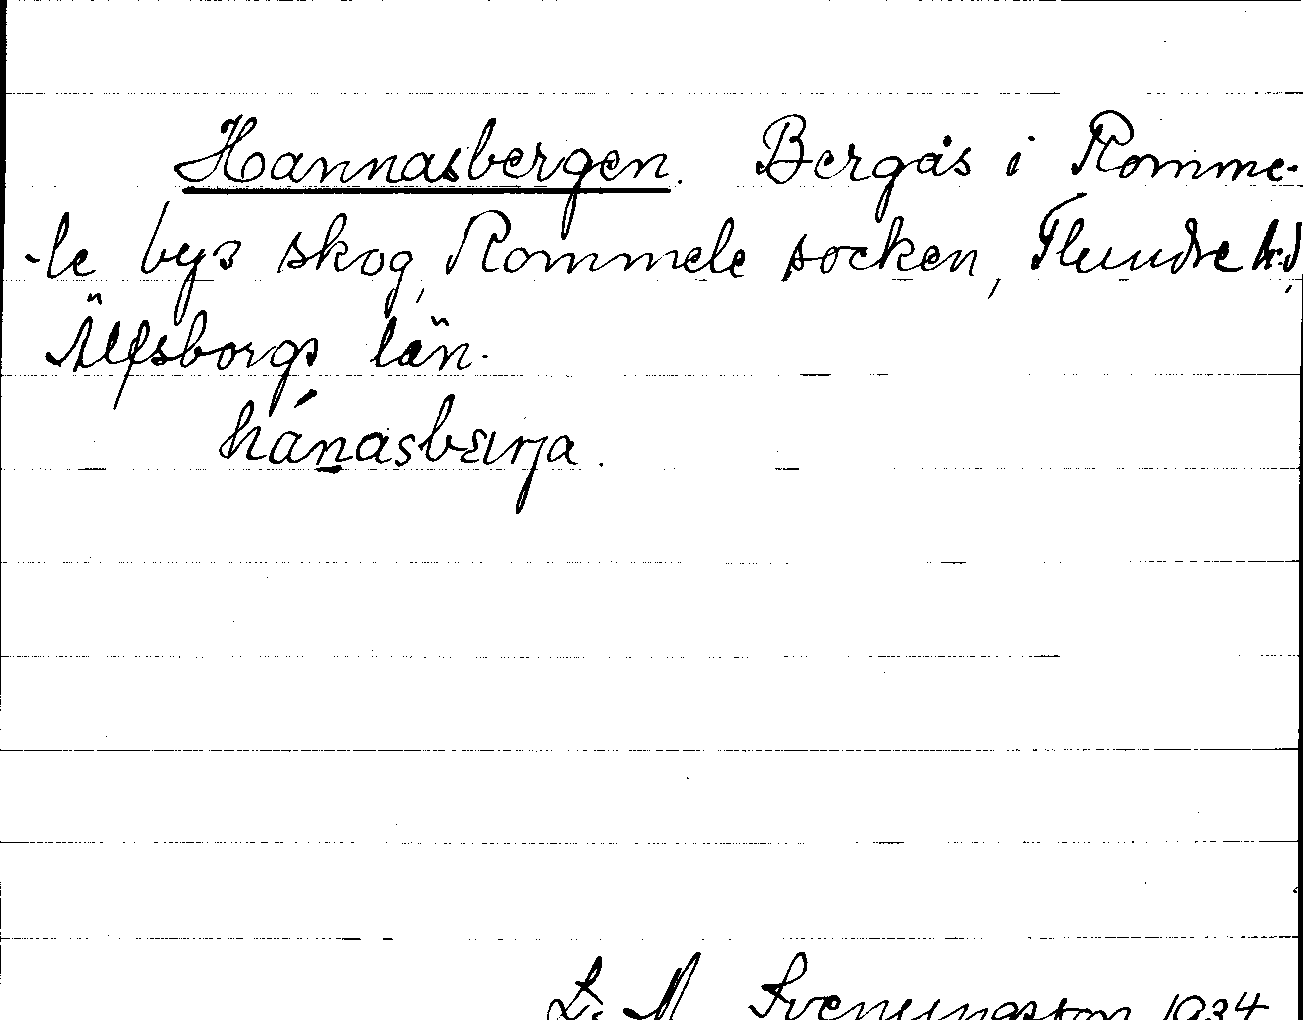 Hannasbergen. Bergås i Romme-
-le bys skog, Rommele socken, Flundre hd,
Älfsborgs län.
hánasbærja.
L. M Svenungsson 1934